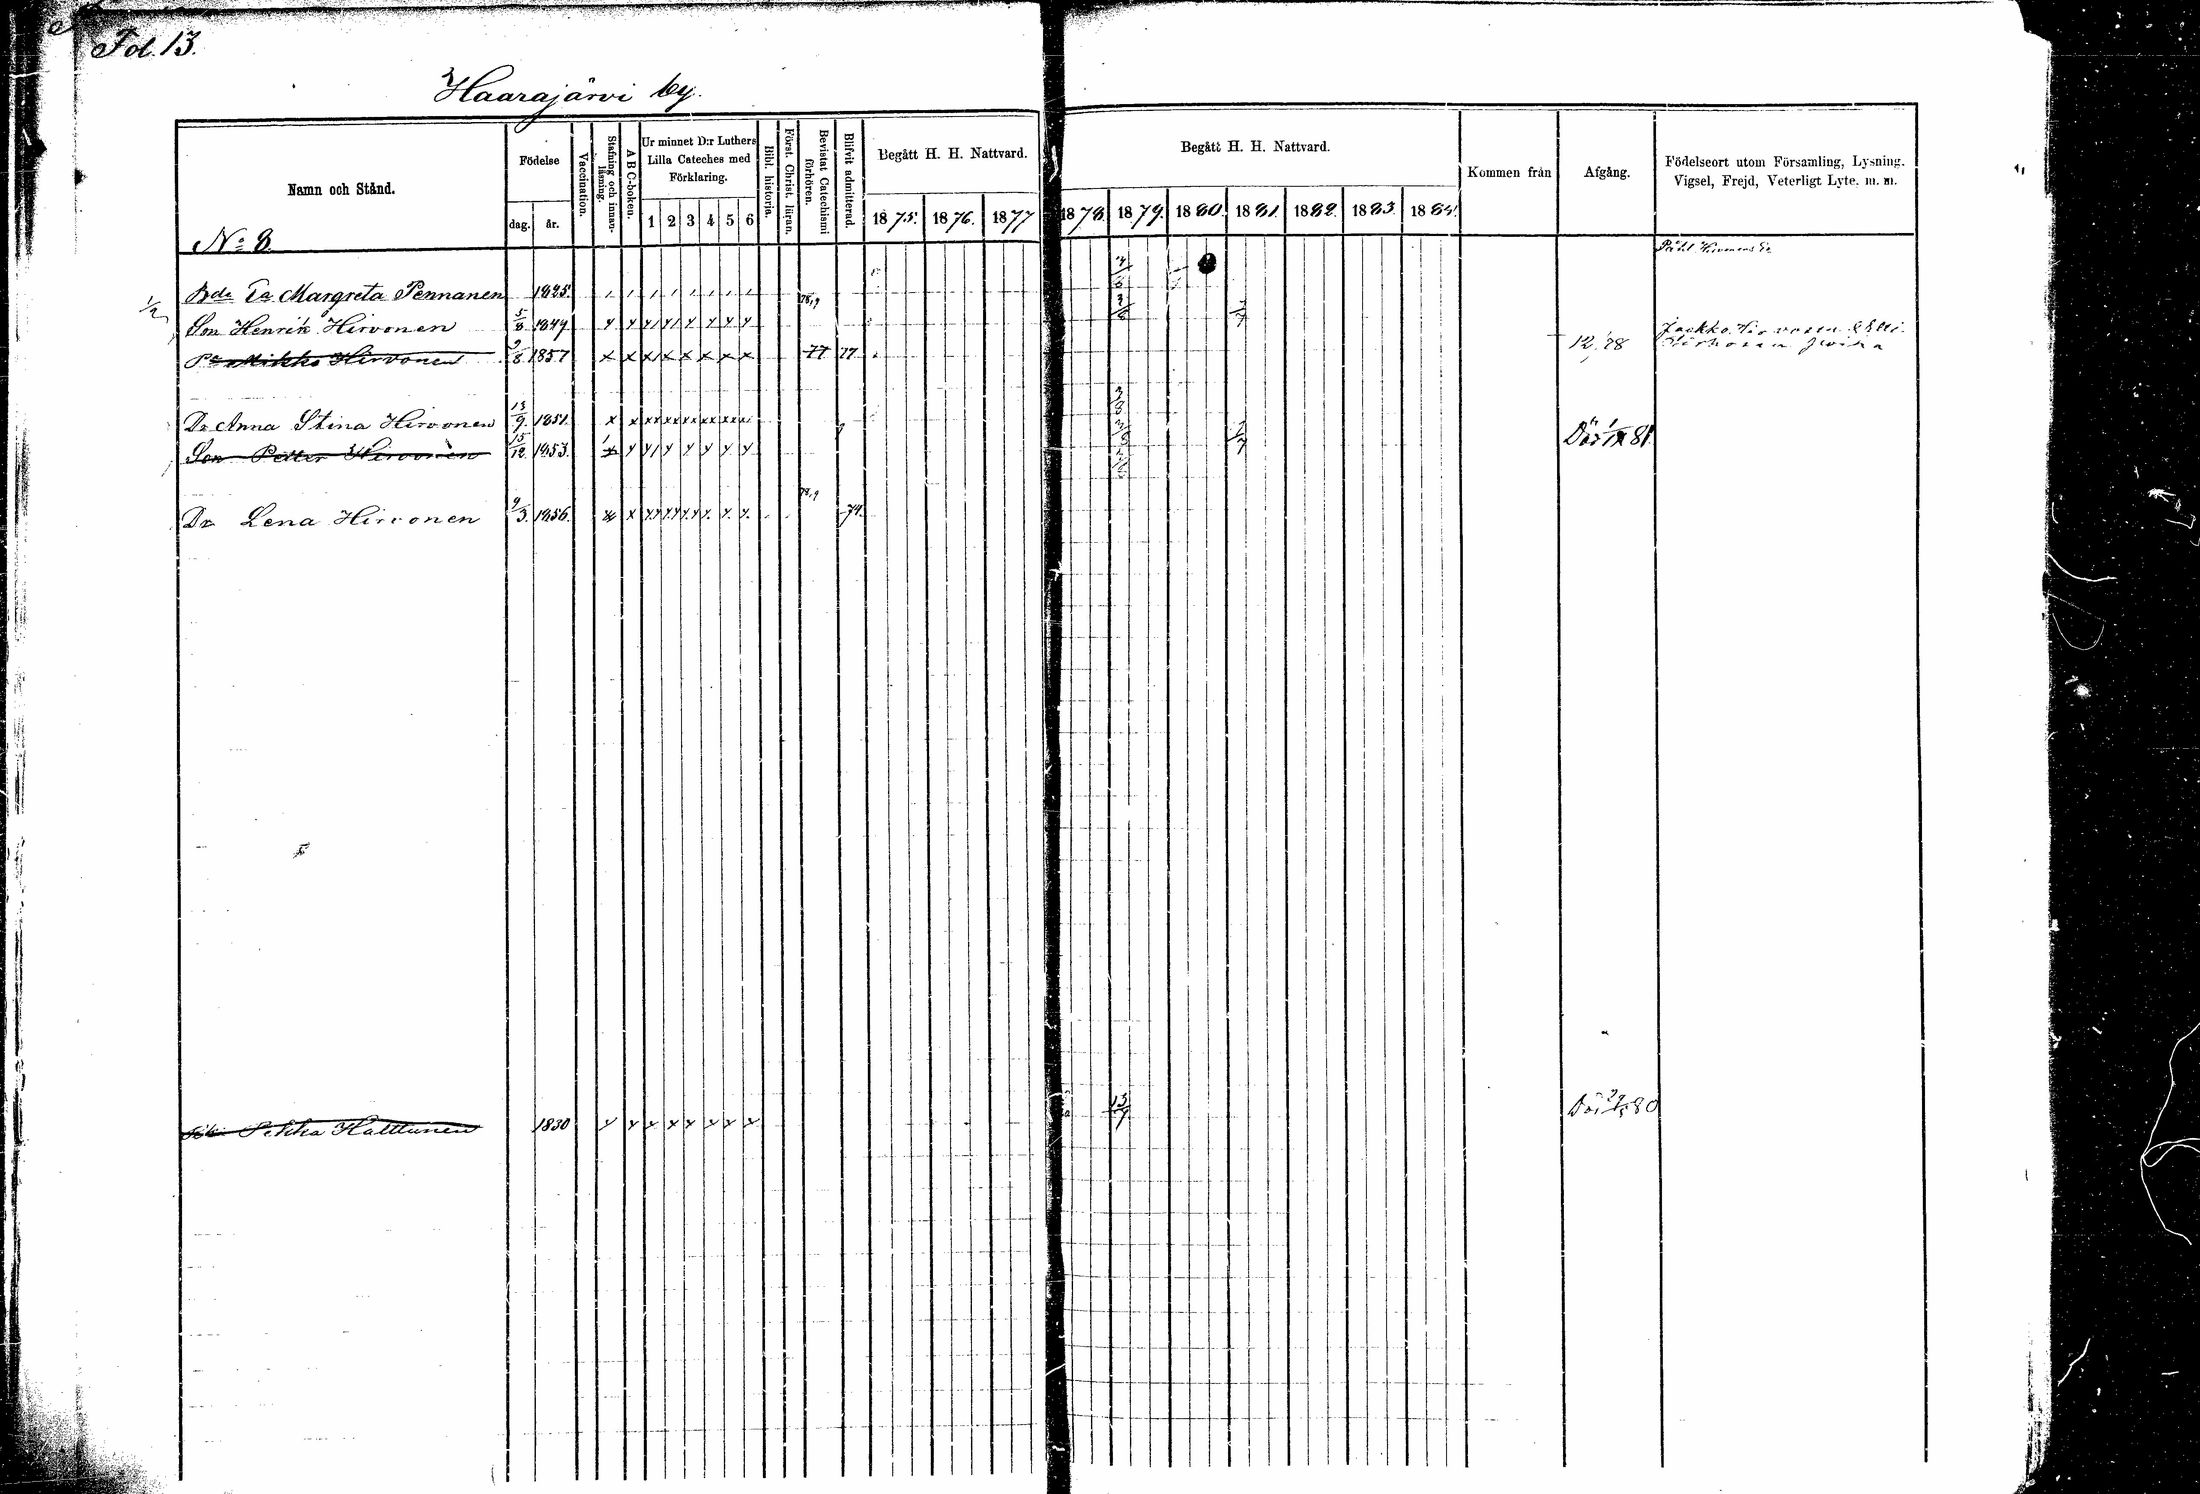 Fol. 13.
Haarajärvi by.
Namn och Stånd.
Födelse
dag.
år.
Vaccination.
Stafning och innan-läsning.
A B C-boken.
Ur minnet D:r Luthers
Lilla Cateches med
Förklaring.
1 2 3 4 5 6
Bibl. historia.
Först. Christ. läran.
Bevistat Catechismi förhören.
Blifvit admitterad.
Begått H. H. Nattvard.
1875. 1876. 1877
Begått H. H. Nattvard.
1878. 1879. 1880. 1881. 1882. 1883. 1884.
Kommen från
Afgång.
Födelseort utom Församling, Lysning,
Vigsel, Frejd, Veterligt Lyte, m. m.
No 8.
Påhl Hirvonens
Margreta Pennanen 1825.
Son Henrik Hirvonen 5/8 1849
Mikko Hirvonen 1857 77 77. 12/1 78
Jaakko Hirvonen
Dr Anna Stina Hirvonen 13/9. 1851.
Son Petter Hirvonen 15/12 1853. Död 81.
Dr Lena Hirvonen 9/3. 1856. 74.
Pekka Halttunen 1830 13/7 Död 80